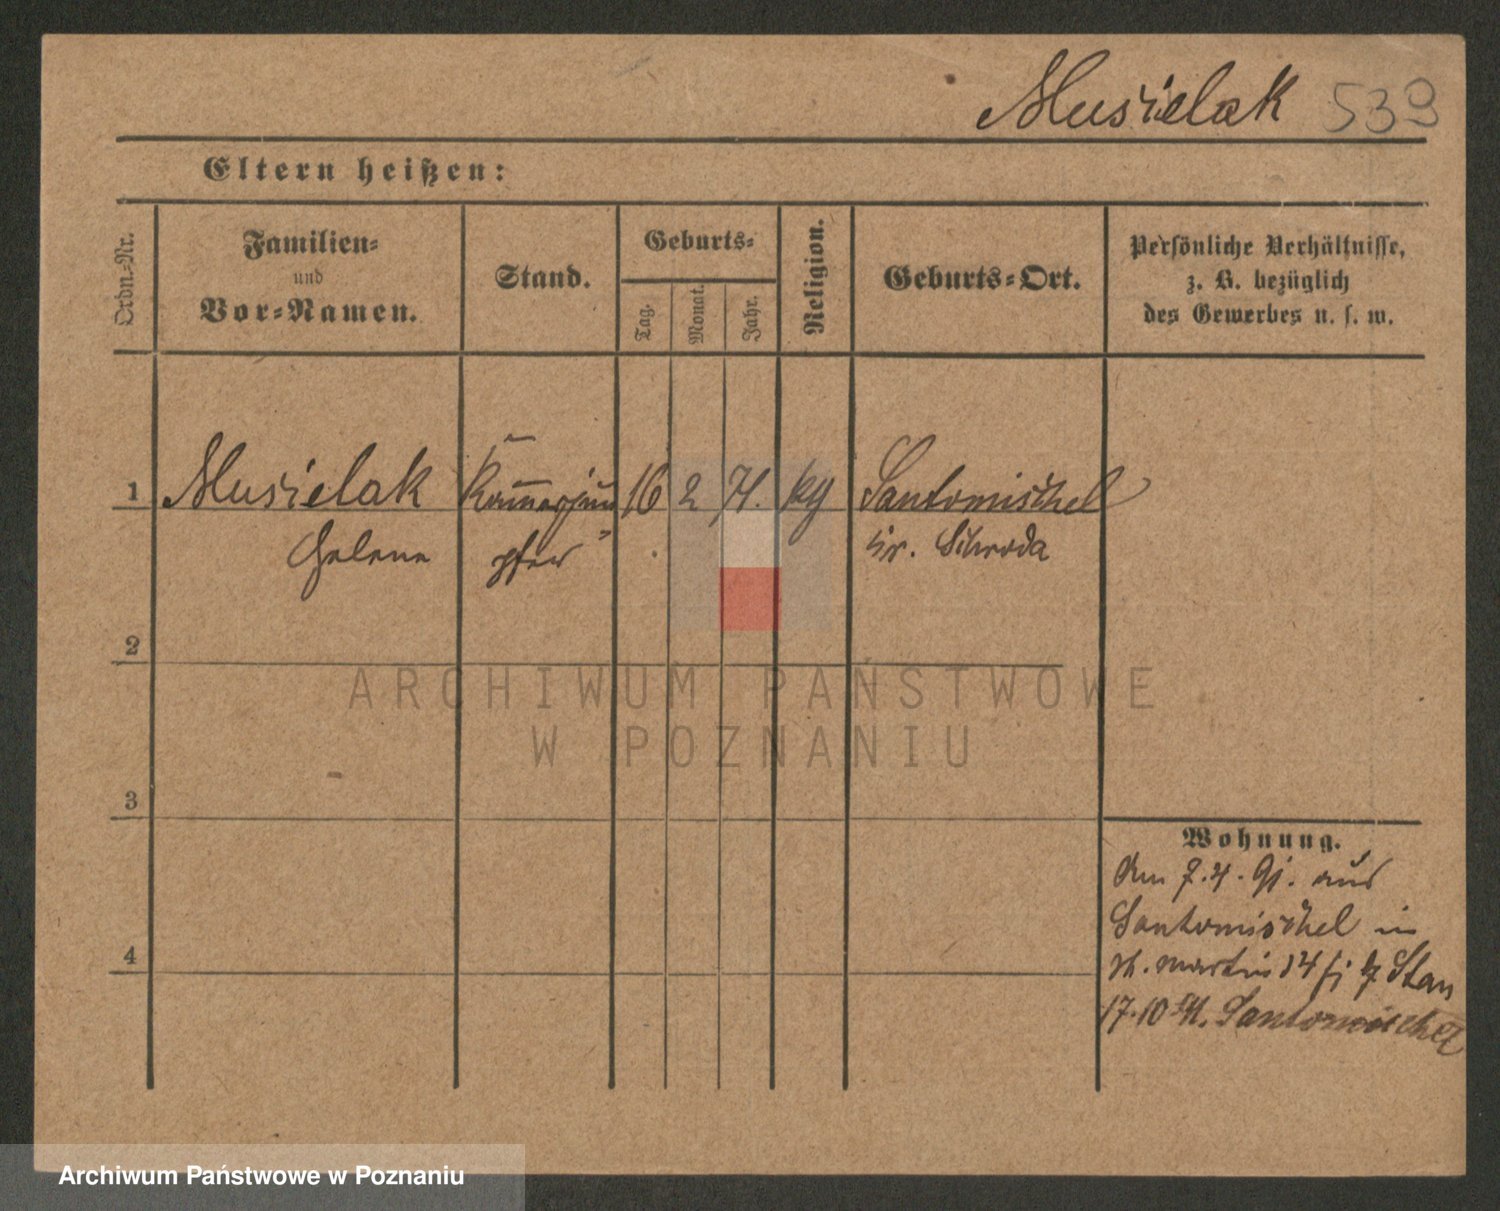 Musielak 539
Eltern heißen:
Ordn.-Nr.
Familien-
und
Vor-Namen.
Stand.
Geburts-
Tag.
Monat.
Jahr.
Religion.
Geburts-Ort.
Persönliche Verhältnisse,
z. B. bezüglich
des Gewerbes u. s. w.
1 Musielak Kammerjun 16 2 71. kg Santomischel
Helene gfer Kr. Schroda
2
3
4
ARCHIWUM PAŃSTWOWE
W POZNANIU
Wohnung.
Am 7.4.91. aus
Santomischel in
St. Martin 34 bj Stan
17.10 91. Santomischel
Archiwum Państwowe w Poznaniu